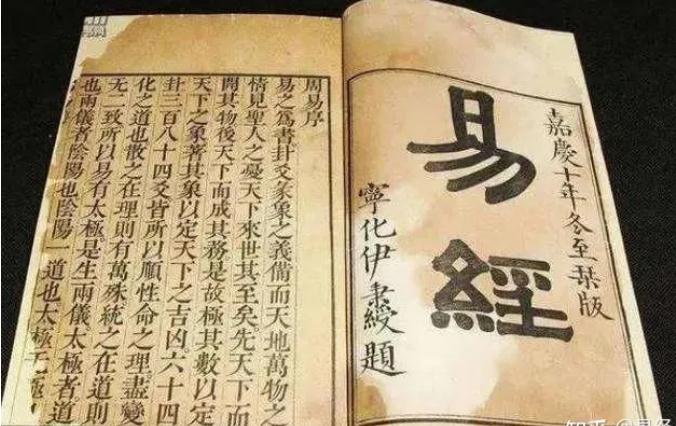 嘉慶十年冬至栞版
易經
寧化伊秉綬題
周易序
易之爲書卦爻彖象之義備而天地萬物之
情見聖人之憂天下來世其至矣先天下而
開其物後天下而成其務是故極其數以定
天下之象著其象以定天下之吉凶六十四
卦三百八十四爻皆所以順性命之理盡變
化之道也散之在理則有萬殊統之在道則
无二致所以易有太極是生兩儀太極者道
也兩儀者陰陽也陰陽一道也太極无極
知乎